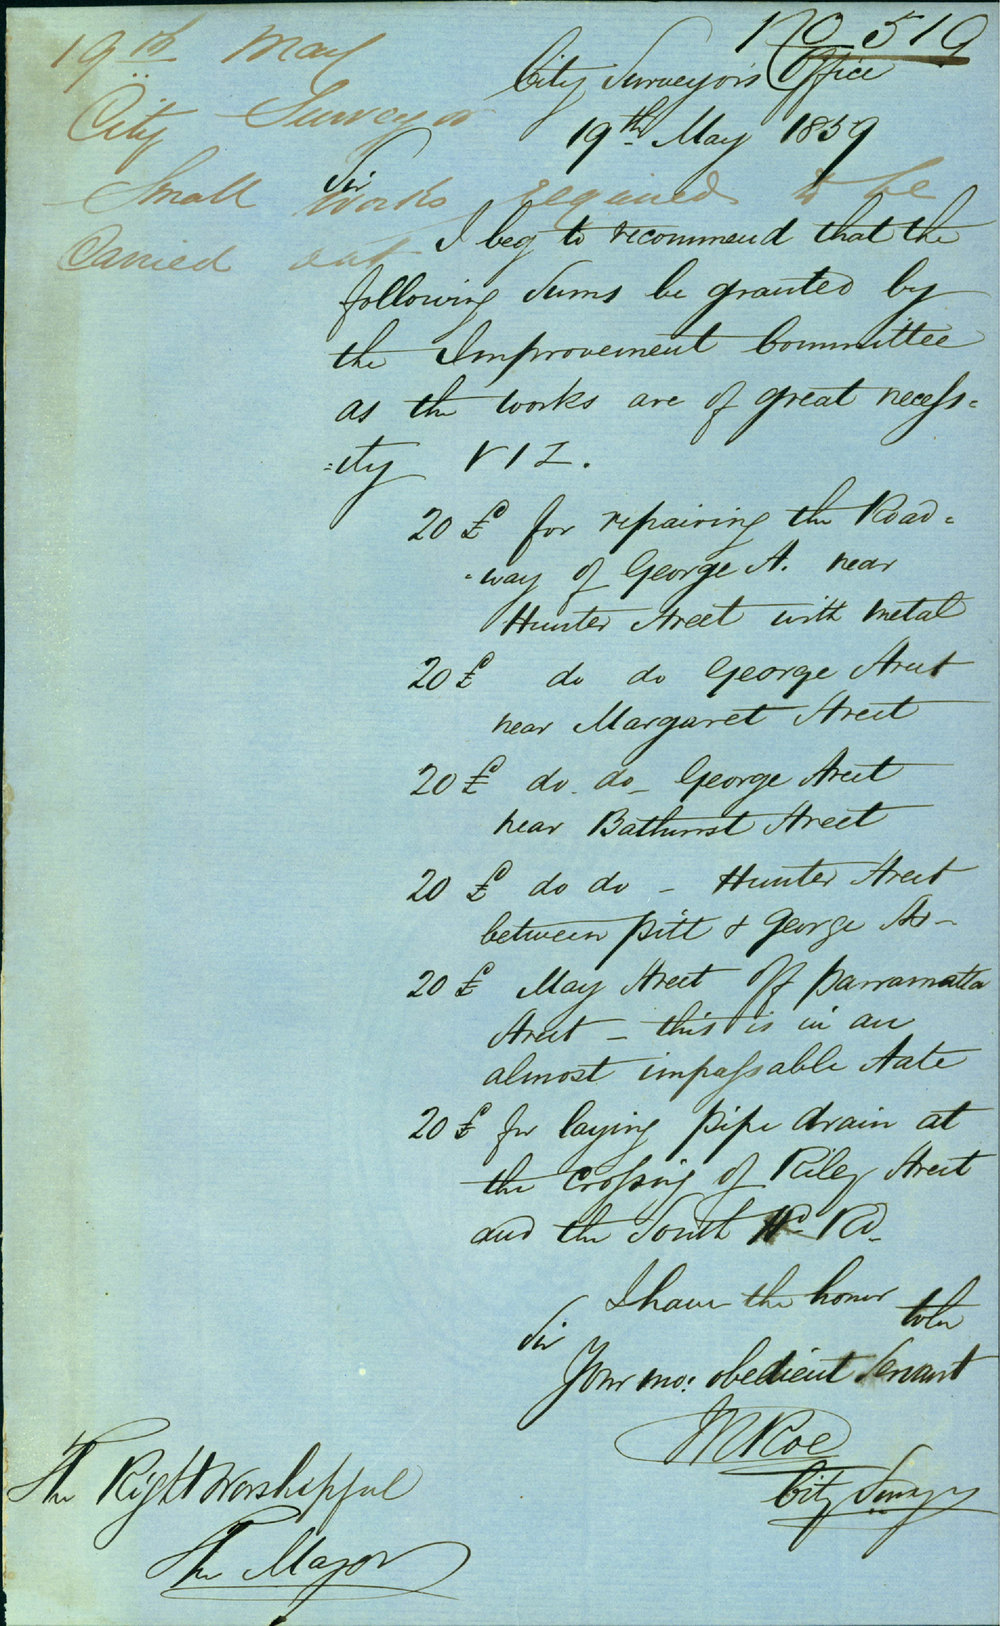 No 519
19th May
City Surveyor
Small works required to be
Carried out
City Surveyor's Office
19th May 1859
Sir
I beg to recommend that the
following Sums be granted by
the Improvement Committee
as the works are of great necess=
=ity VIZ.
20 £ for repairing the Road=
=way of George St. near
Hunter Street with metal
20 £ do do George Street
near Margaret Street
20 £ do. do_ George Street
near Bathurst Street
20 £ do do - Hunter Street
between Pitt & George Sts-
20 £ May Street off Parramatta
Street - this is in an
almost impassable State
20 £ for laying pipe drain at
the Crossing of Riley Street
and the South Hd Rd_
I have the honor to be
Sir
Your mo: obedient Servant
W Roe
City Survyr
The Right Worshipful
The Mayor